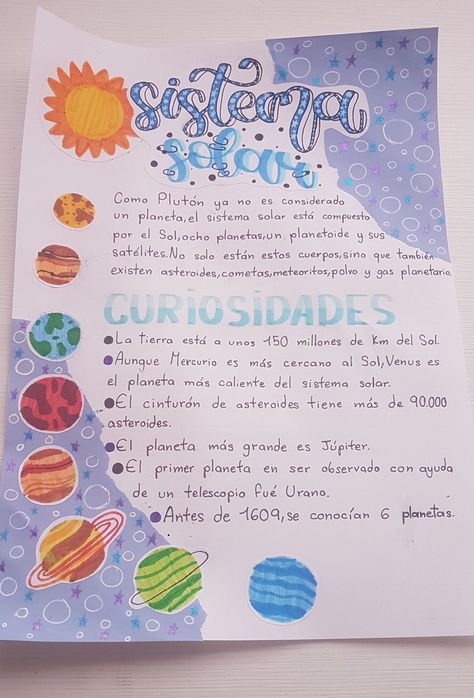 sistema
solar
Como Plutón ya no es considerado
un planeta,el sistema solar está compuesto
por el Sol,ocho planetas,un planetoide y sus
satélites.No solo están estos cuerpos,sino que también
existen asteroides,cometas,meteoritos,polvo y gas planetario.
CURIOSIDADES
●La tierra está a unos 150 millones de Km del Sol.
●Aunque Mercurio es más cercano al Sol,Venus es
el planeta más caliente del sistema solar.
●El cinturón de asteroides tiene más de 90.000
asteroides.
●El planeta más grande es Júpiter.
●El primer planeta en ser observado con ayuda
de un telescopio fué Urano.
●Antes de 1609,se conocían 6 planetas.